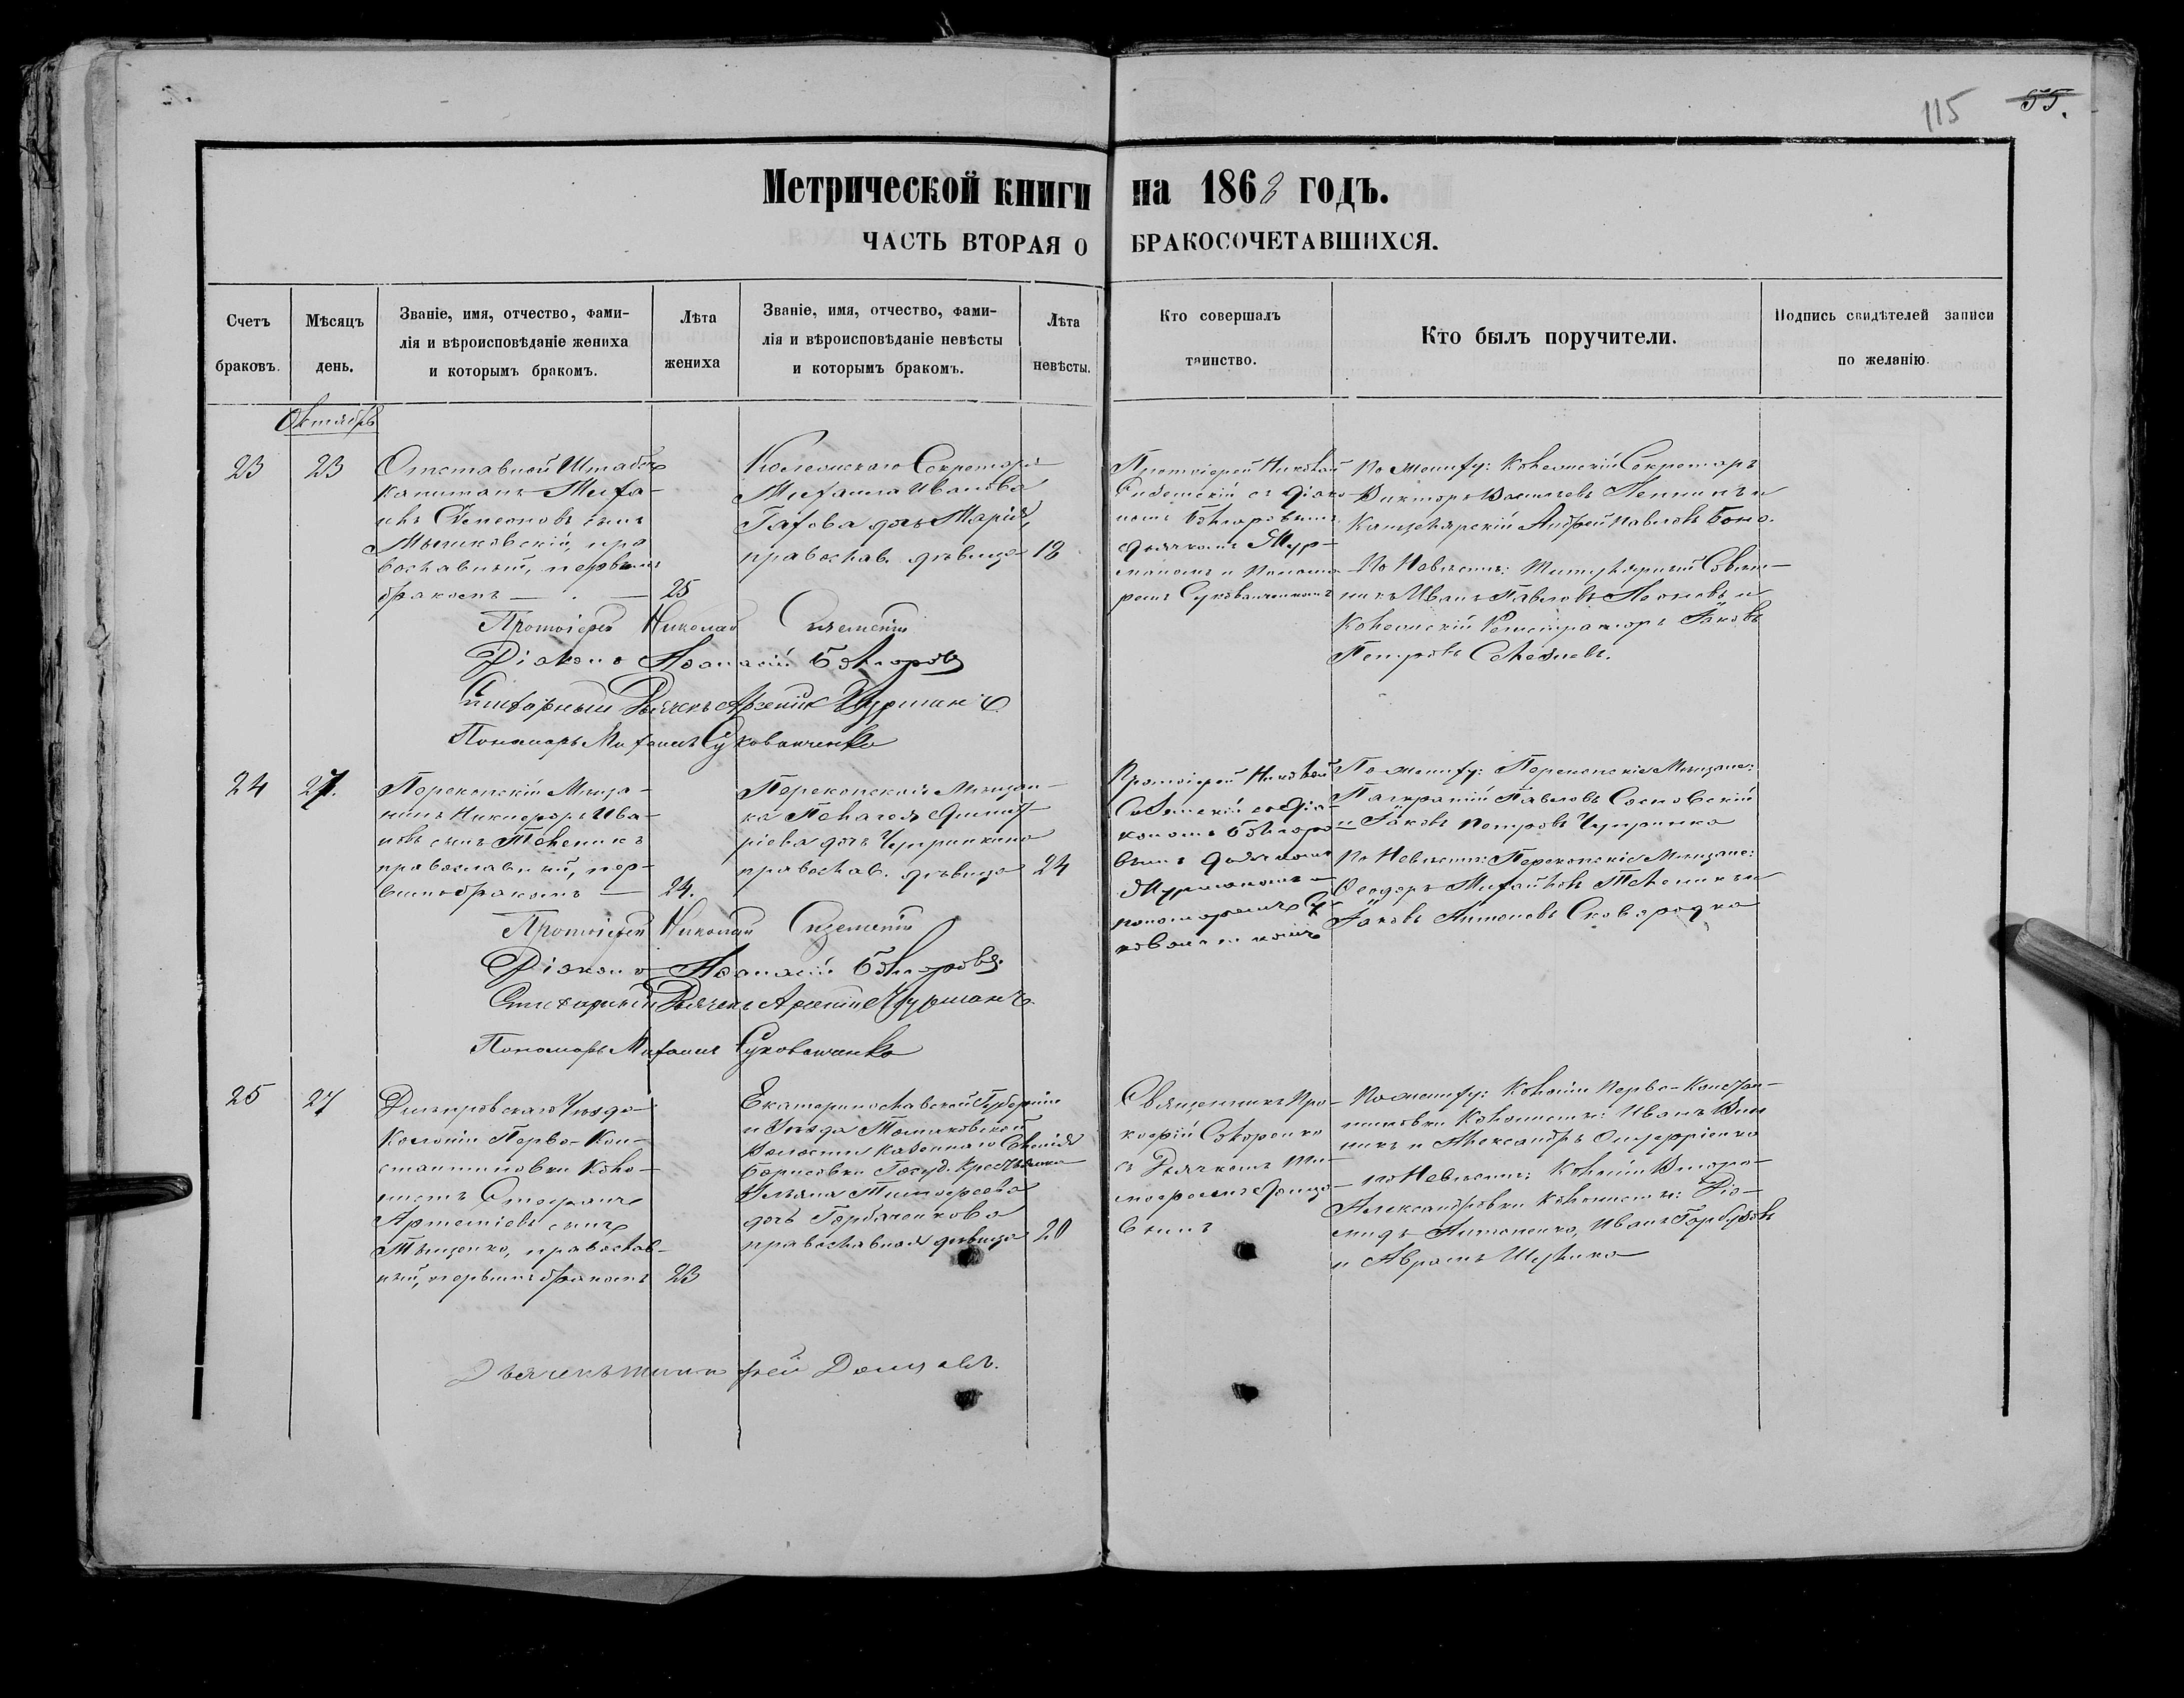 115 55.
Метрической книги на 1868 годъ.
ЧАСТЬ ВТОРАЯ О БРАКОСОЧЕТАВШИХСЯ.
Счетъ
браковъ.
Мѣсяцъ
день.
Званіе, имя, отчество, фами-
лія и вѣроисповѣданіе жениха
и которымъ бракомъ.
Лѣта
жениха
Званіе, имя, отчество, фами-
лія и вѣроисповѣданіе невѣсты
и которымъ бракомъ.
Лѣта
невѣсты.
Кто совершалъ
таинство.
Кто былъ поручители.
Подпись свидѣтелей записи
по желанію.
Октябрь
23
23
Отставной Штабсъ
Капитанъ Миха-
илъ Семеоновъ сынъ
пра
вославный, первымъ
бракомъ — 25
Коллежскаго Секретаря
Михаила Иванова
дочь Марія,
православ. дѣвица 18
Протоіерей Николай
съ Діако-
номъ
дьячкомъ
и Понома
ремъ Суковатченкомъ
По жениху: Коллежскій Секретарь
Викторъ Васильевъ и
Канцелярскій Андрей Павловъ
По Невѣстѣ: Титулярный Совѣт-
никъ Иванъ Павловъ и
Коллежскій Регистраторъ Іаковъ
Петровъ
Протоіерей Николай
Діаконъ
Дьячекъ Арсеній
Пономарь Михаилъ Суковатченко
24
27.
Перекопскій Мѣща-
нинъ Никифоръ Ива-
новъ сынъ
православный, пер-
вымъ бракомъ — 24.
Перекопская Мѣщан-
ка Пелагея Димит
ріева дочь Чупринкина
православ. дѣвица 24
Протоіерей Николай
съ Діа-
кономъ
дьячкомъ
и
пономаремъ Су
коватченкомъ
По жениху: Перекопскіе Мѣщане:
Панкратій Павловъ Сосновскій
и Іаковъ Петровъ Чупринка
По Невѣстѣ: Перекопскіе Мѣщане:
Феодоръ Михайловъ и
Іаковъ Антоновъ Сковородка
Протоіерей Николай
Діаконъ
Дьячекъ Арсеній
Пономарь Михаилъ Суковатченко
25
27
Днѣпровскаго Уѣзда
Колоніи Перво-Кон-
стантиновки Коло-
нистъ Стефанъ
Артеміевъ сынъ
Тыщенко, православ-
ный, первымъ бракомъ 23
Екатеринославской Губерніи
и Уѣзда Томаковской
Волости казеннаго Селенія
Борисовки Госуд. Крестьянка
Ульяна Тимофеева
дочь Горбаченкова
православная дѣвица 20
Священникъ Про-
кофій Сикоренко
съ Дьячкомъ Ти-
мофеемъ Донцо-
вымъ
По жениху: Колоніи Перво-Констан-
тиновки Колонисты: Иванъ
и Александръ Онуфріенко
по Невѣстѣ: Колоніи Второ-
Александровки Колонисты: Діо-
мидъ Антоненко, Иванъ Горбузовъ
и Аврамъ
Дьячекъ Тимофей Донцовъ.